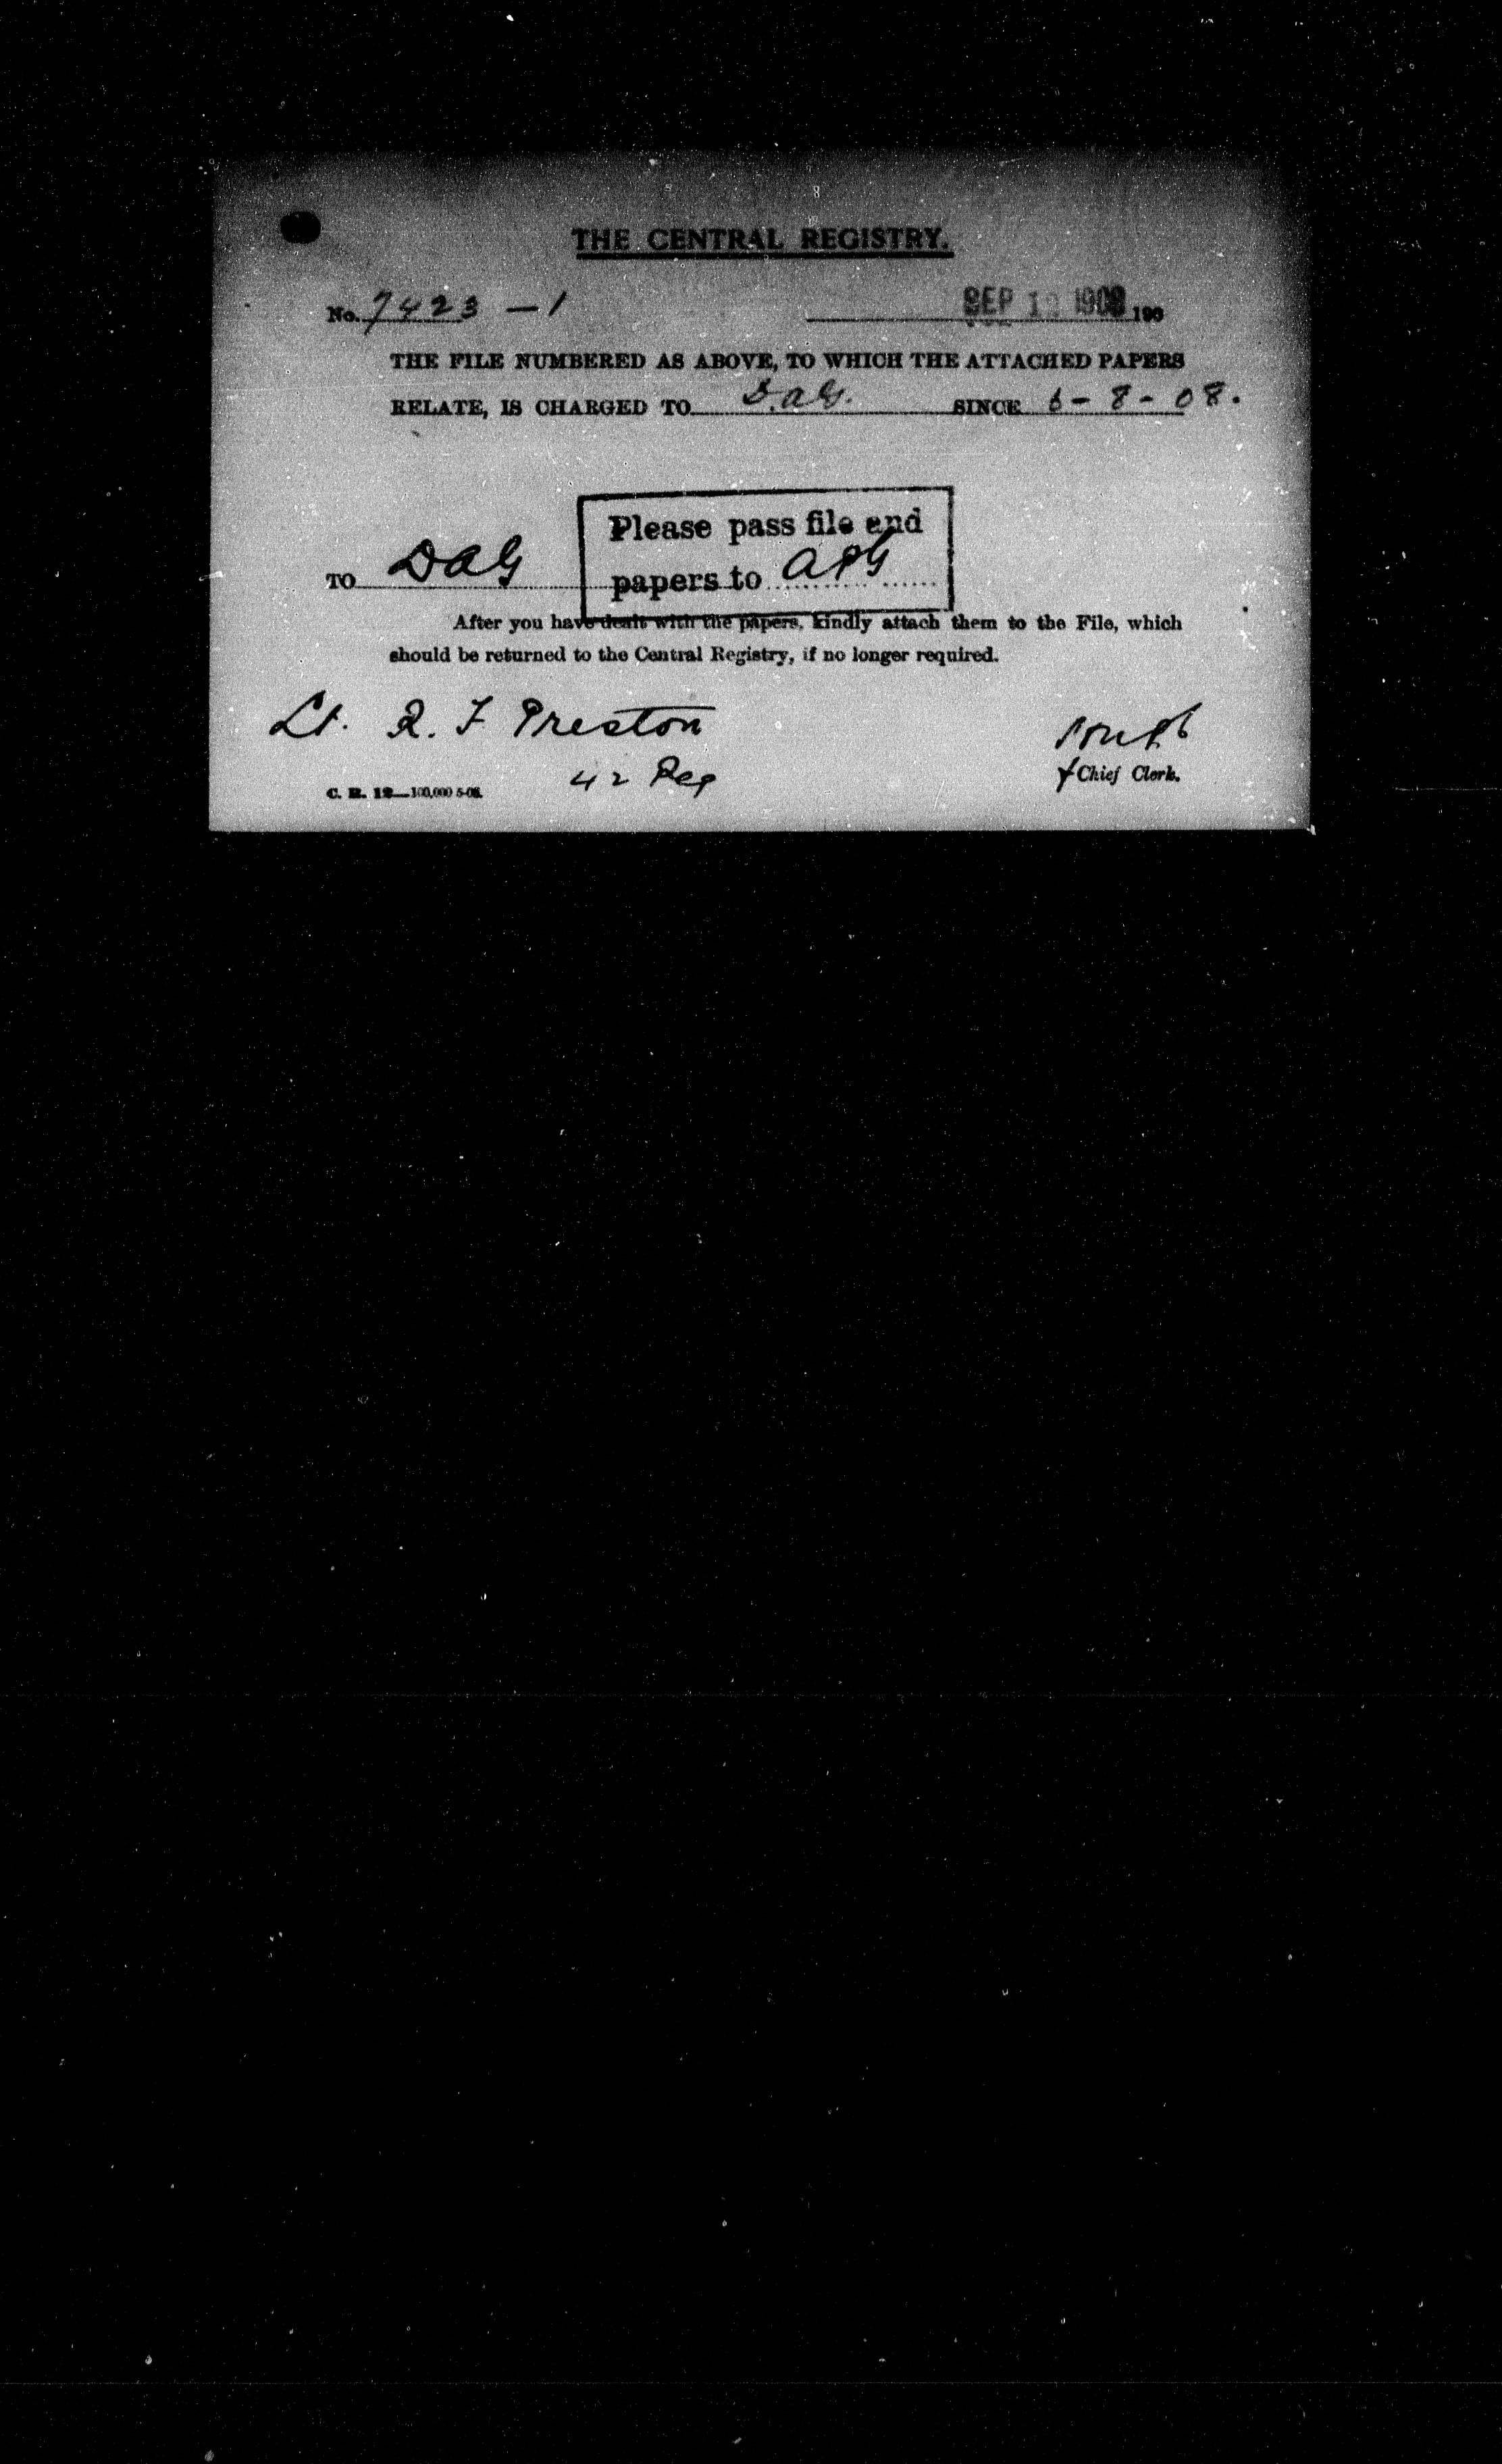 THE CENTRAL REGISTRY.
No. 7423 - 1 SEP 1908 190
THE FILE NUMBERED AS ABOVE, TO WHICH THE ATTACHED PAPERS
RELATE, IS CHARGED TO D.A.G. SINCE 6 - 8 - 08.
Please pass file and
papers to
TO DAG
After you have dealt with the papers, kindly attach them to the File, which
should be returned to the Central Registry, if no longer required.
Lt. R. F Preston
42 Reg
Chief Clerk.
C. R. 12—100,000 5-08.